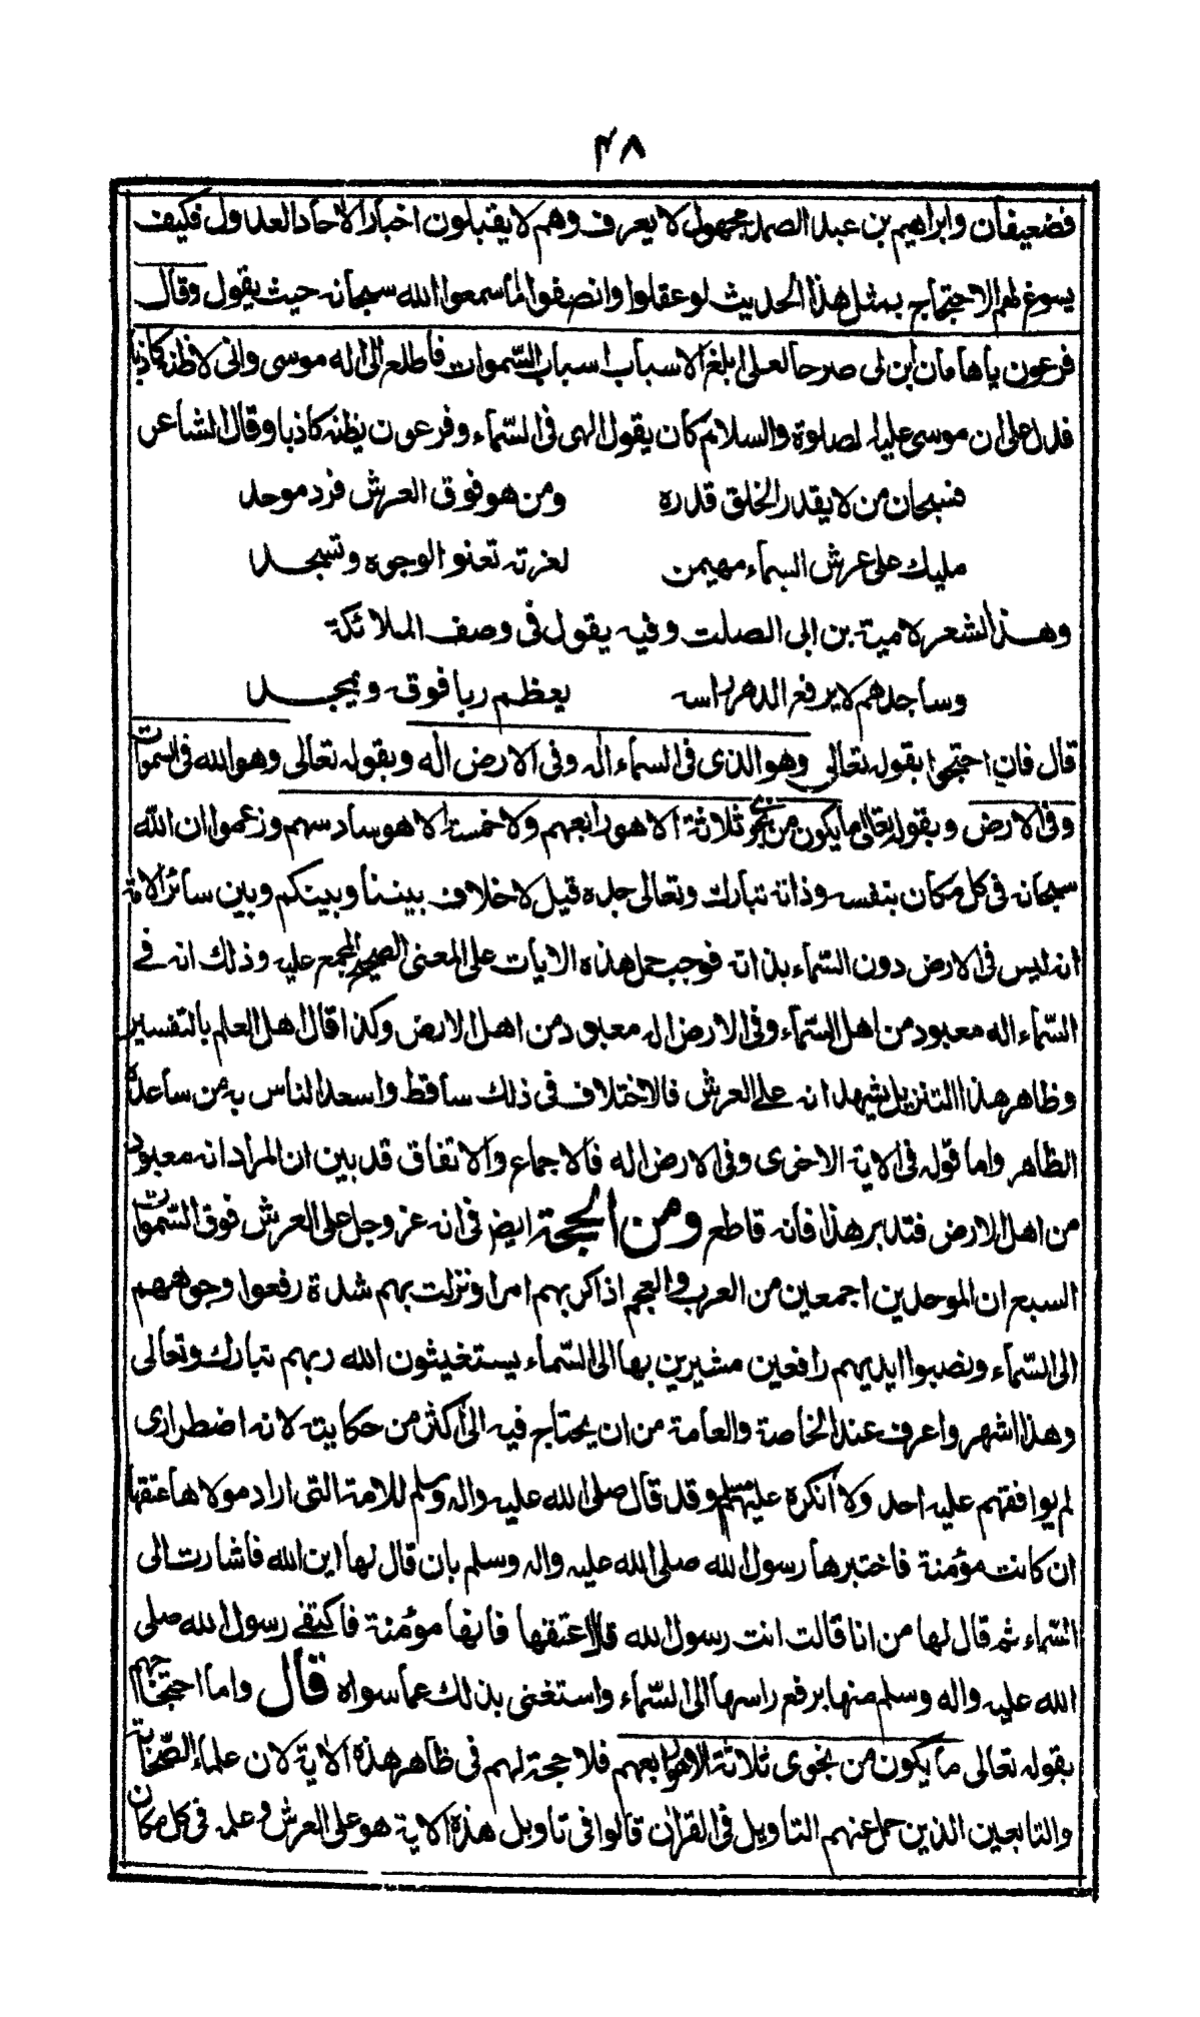 ٤٨
فضعيفان وابراهيم بن عبد الصمد مجهول لا يعرف وهم لا يقبلون اخبار الاحاد العدول فكيف
يسوغ لهم الاحتجاج بمثل هذا الحديث لو عقلوا وانصفوا اما سمعوا الله سبحانه حيث يقول وقال
فرعون ياهامان ابن لى صرحا لعلى ابلغ الاسباب اسباب السموات فاطلع الى اله موسى وانى لاظنه كاذبا
فدل على ان موسى عليه الصلوة والسلام كان يقول الهى فى السّماء وفرعون يظنه كاذبا وقال الشاعر
فسبحان من لا يقدر الخلق قدره ومن هو فوق العرش فرد موحد
مليك على عرش السماء مهيمن لعزته تعنو الوجوه وتسجد
وهذا الشعر لامية بن ابى الصلت وفيه يقول فى وصف الملائكة
وساجدهم لا يرفع الدهر راسه يعظم ربا فوقه ويمجد
قال فان احتجوا بقوله تعالى وهو الذى فى السماء اله وفى الارض اله وبقوله تعالى وهو الله فى السموات
وفى الارض وبقوله تعالى ما يكون من نجوى ثلاثة الا هو رابعهم ولا خمسة الا هو سادسهم وزعموا ان الله
سبحانه فى كل مكان بنفسه وذاته تبارك وتعالى جده قيل لا خلاف بيننا وبينكم وبين سائر الامة
انه ليس فى الارض دون السّماء بذاته فوجب حمل هذه الايات على المعنى الصحيح المجمع عليه وذلك انه فے
السّماء اله معبود من اهل السّماء وفى الارض اله معبود من اهل الارض وكذا قال اهل العلم بالتفسير
وظاهر هذا التنزيل يشهد انه على العرش فالاختلاف فى ذلك ساقط واسعد الناس به من ساعده
الظاهر واما قوله فى الاية الاخرى وفى الارض اله فالاجماع والاتفاق قد بين ان المراد انه معبود
من اهل الارض فتدبر هذا فانه قاطع ومن الحجة ايض فى انه عز وجل على العرش فوق السّموات
السبع ان الموحدين اجمعين من العرب والعجم اذا كربهم امر او نزلت بهم شدة رفعوا وجوههم
الى السّماء ونصبوا ايديهم رافعين مشيرين بها الى السّماء يستغيثون الله ربهم تبارك وتعالى
وهذا اشهر واعرف عند الخاصة والعامة من ان يحتاج فيه الى اكثر من حكايته لانه اضطرارى
لم يوافقهم عليه احد ولا انكره عليهم مسلم وقد قال صلى الله عليه واله وسلم للامة التى اراد مولاها عتقها
ان كانت مؤمنة فاختبرها رسول الله صلى الله عليه واله وسلم بان قال لها اين الله فاشارت الى
السّماء ثم قال لها من انا قالت انت رسول الله قال اعتقها فانها مؤمنة فاكتفے رسول الله صلى
الله عليه واله وسلم منها برفع راسها الى السّماء واستغنى بذلك عما سواه قال واما احتجاجهم
بقوله تعالى ما يكون من نجوى ثلاثة الا هو رابعهم فلا حجة لهم فى ظاهر هذه الاية لان علماء الصّحابة
والتابعين الذين حمل عنهم التاويل فى القران قالوا فى تاويل هذه الاية هو على العرش وعلمه فى كل مكان